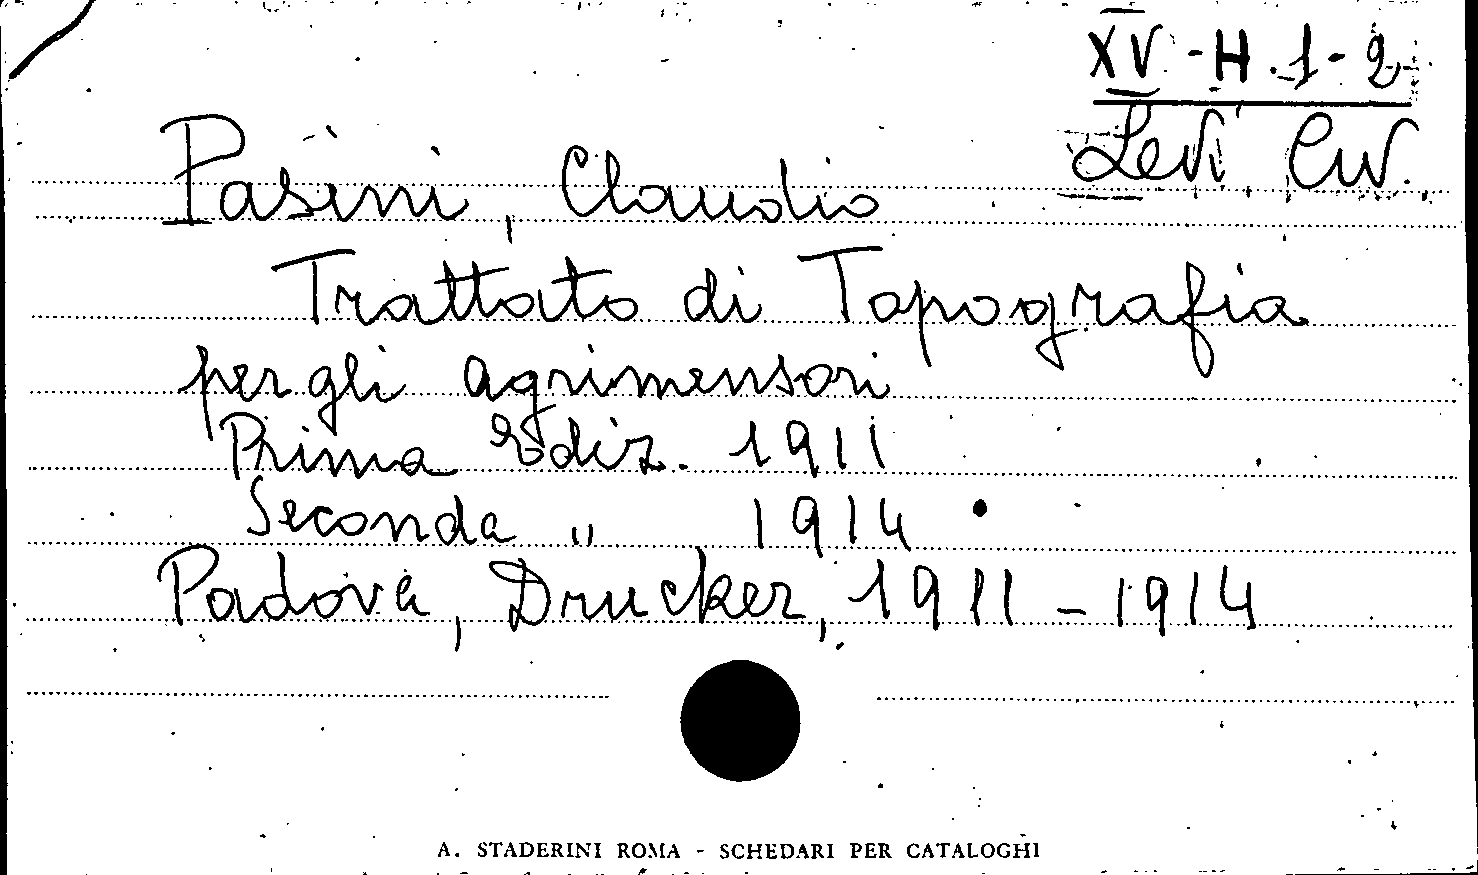 XV - H . 1 - 2
Levi Civ.
Pasini, Claudio
Trattato di Topografia
per gli agrimensori
Prima Ediz. 1911
Seconda " 1914
Padova, Drucker, 1911 - 1914
A. STADERINI ROMA - SCHEDARI PER CATALOGHI